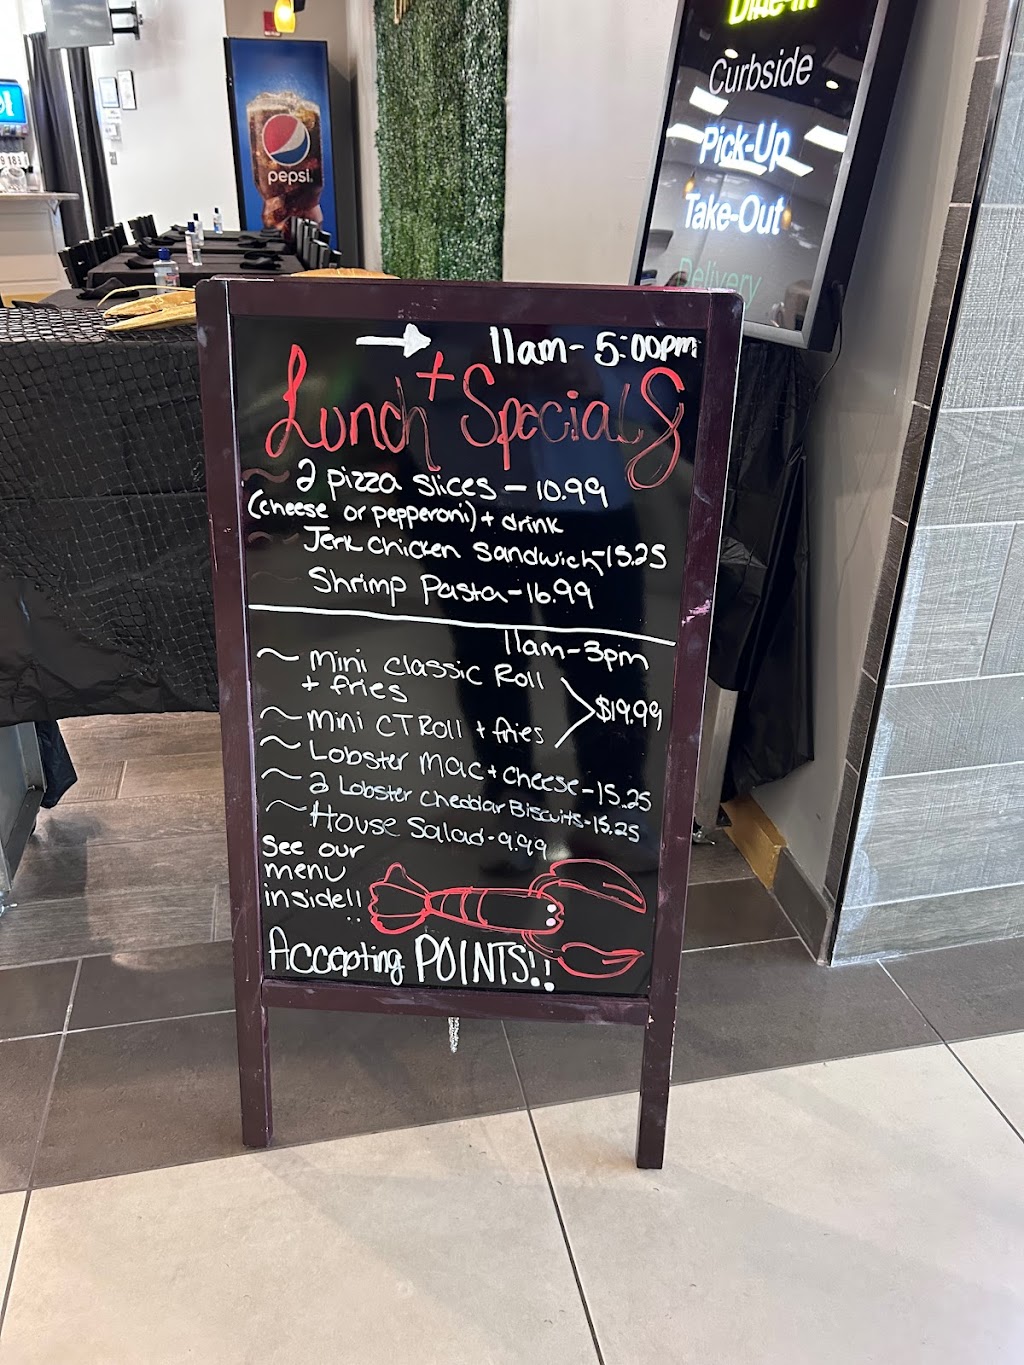 Dine-in
Curbside
Pick-Up
Take-Out
Delivery
pepsi
11am - 5:00pm
Lunch + Specials
~ 2 pizza slices - 10.99
(cheese or pepperoni) + drink
~ Jerk Chicken Sandwich - 15.25
Shrimp Pasta - 16.99
11am - 3pm
~ Mini Classic Roll
+ fries
$19.99
~ Mini CT Roll + fries
~ Lobster Mac + Cheese - 15.25
~ 2 Lobster Cheddar Biscuits - 15.25
~ House Salad - 9.99
See our
menu
inside!!
Accepting POINTS!!